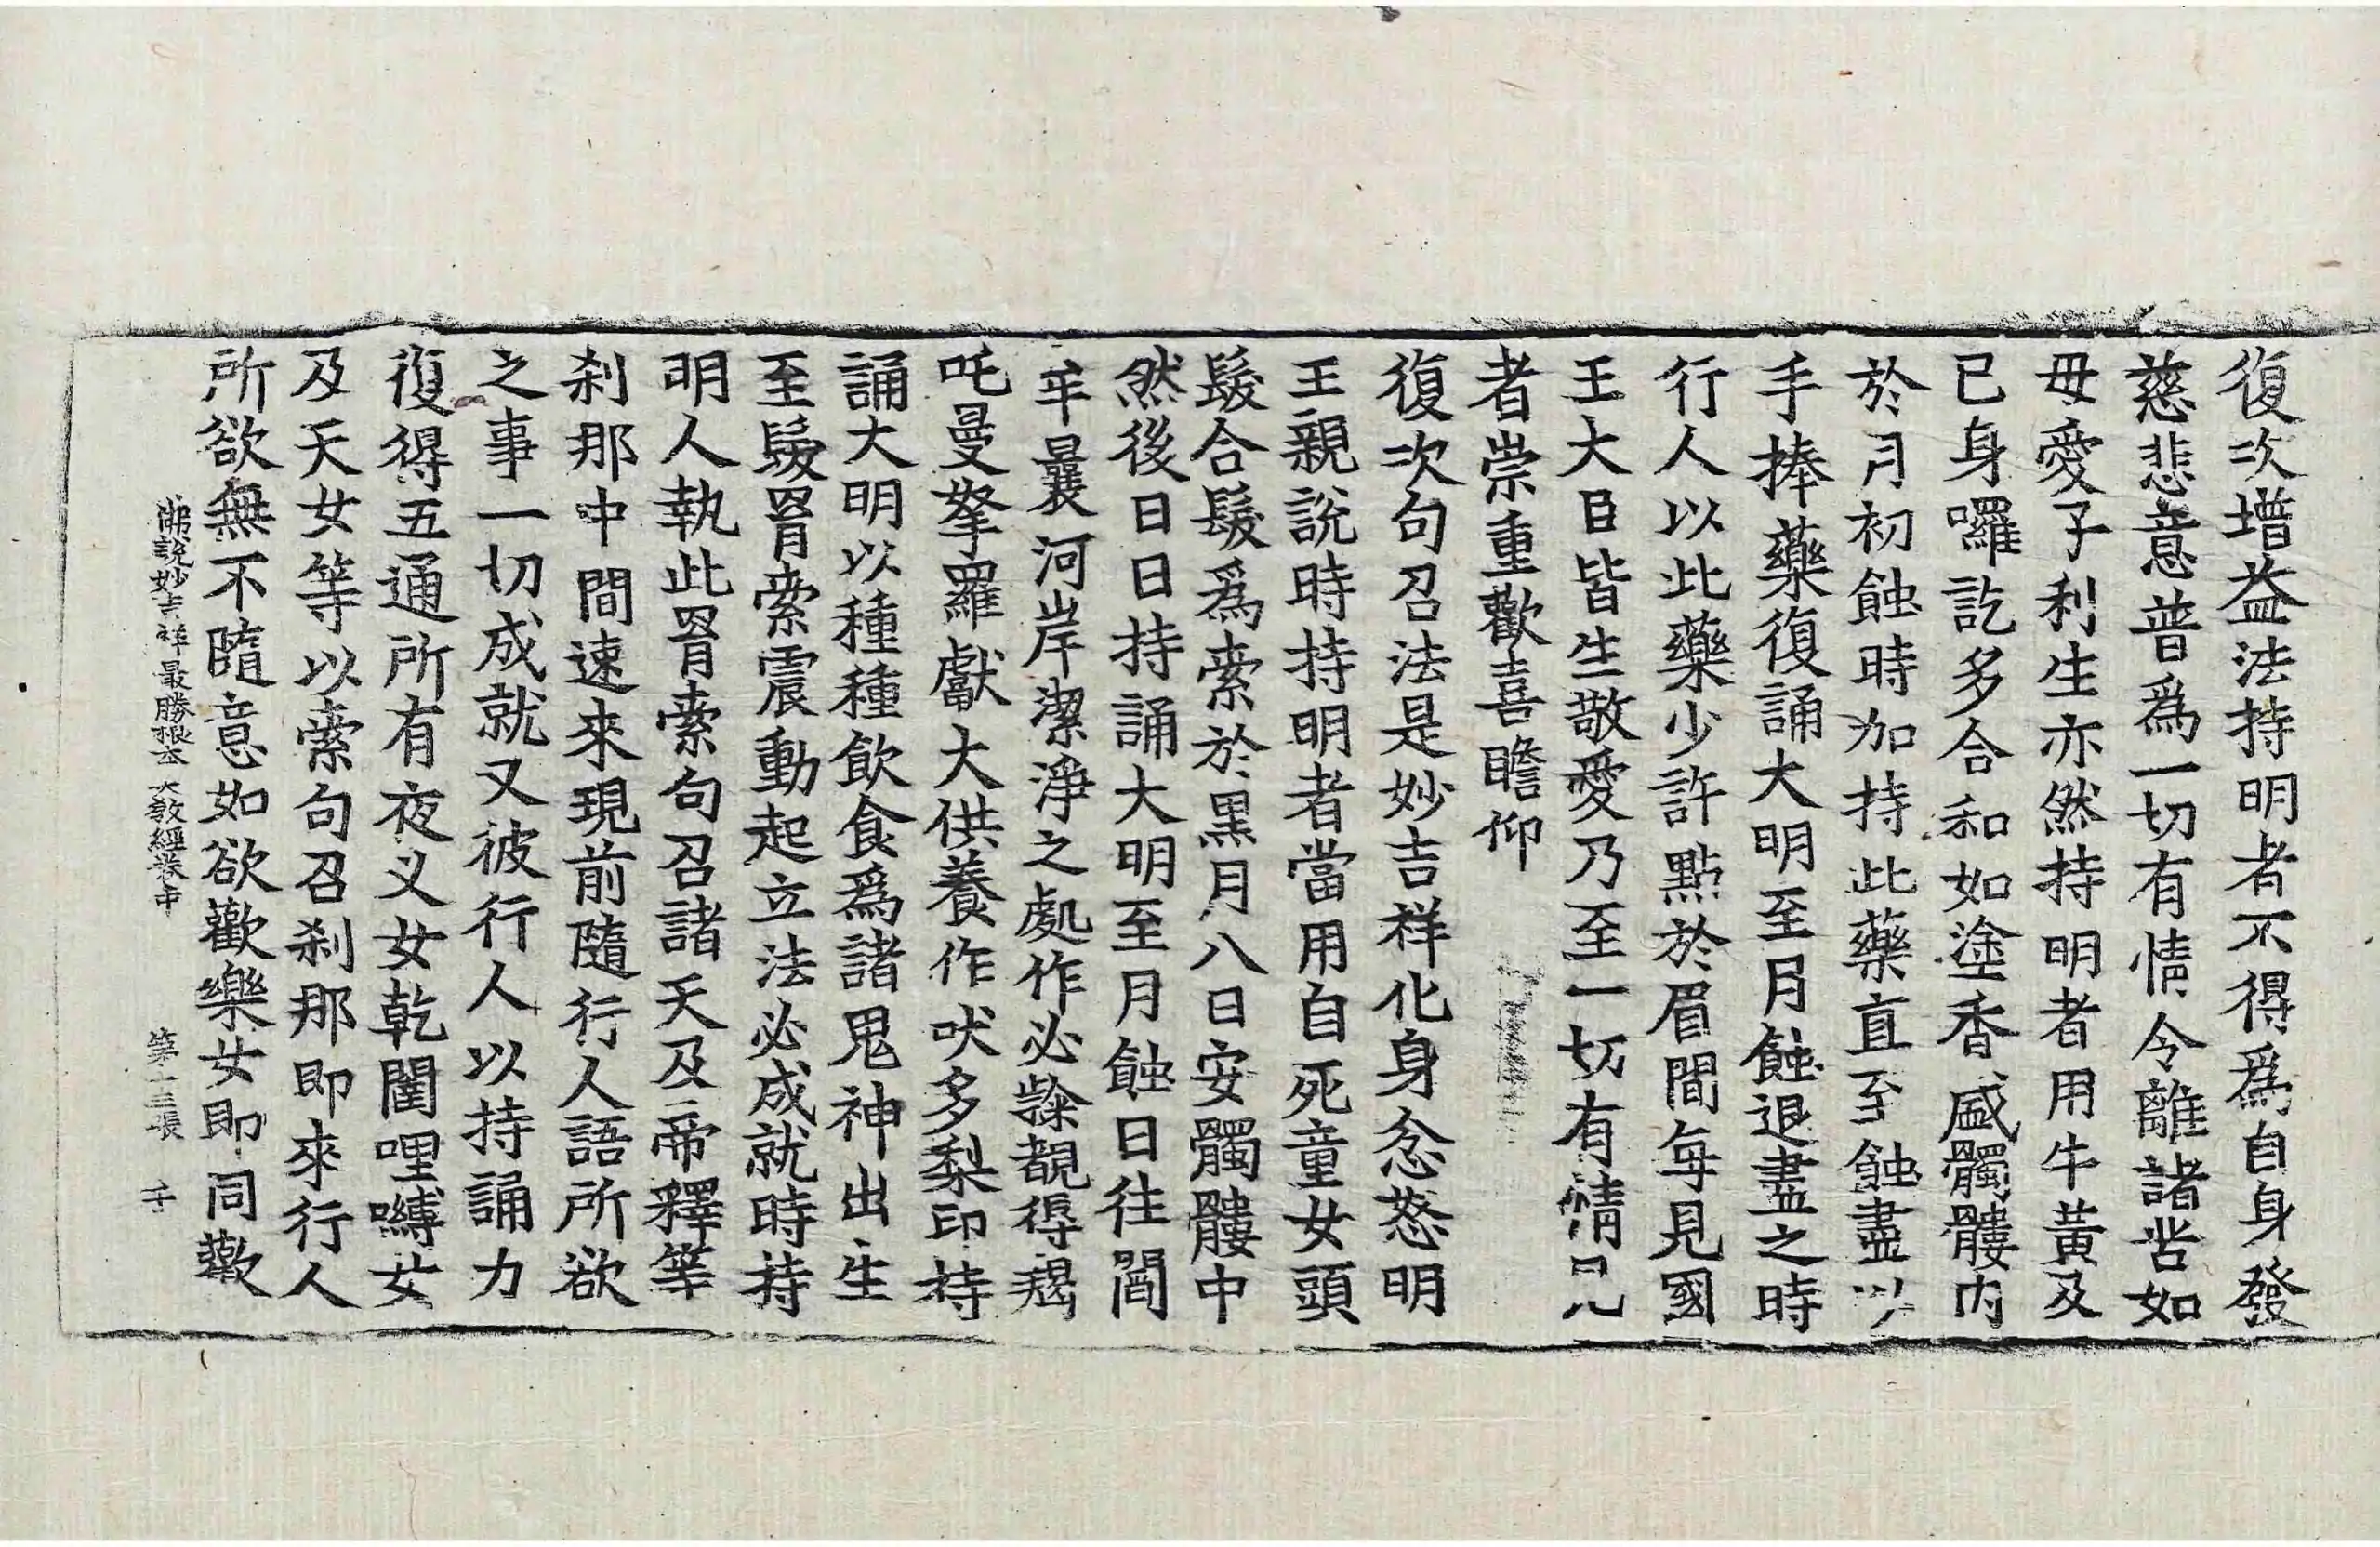 復次增益法持明者不得爲自身發
慈悲意普爲一切有情令離諸苦如
母愛子利生亦然持明者用牛黃及
己身囉訖多合和如塗香盛髑髏內
於月初蝕時加持此藥直至蝕盡以
手捧藥復誦大明至月蝕退盡之時
行人以此藥少許點於眉間每見國
王大臣皆生敬愛乃至一切有情見
者崇重歡喜瞻仰
復次句召法是妙吉祥化身忿怒明
王親說時持明者當用自死童女頭
髮合髮爲索於黑月八日安髑髏中
然後日日持誦大明至月蝕日往閻
牟曩河岸潔淨之處作必隸覩得羯
吒曼拏羅獻大供養作吠多梨印持
誦大明以種種飲食爲諸鬼神出生
至髮罥索震動起立法必成就時持
明人執此罥索句召諸天及帝釋等
刹那中間速來現前隨行人語所欲
之事一切成就又彼行人以持誦力
復得五通所有夜叉女乾闥哩嚩女
及天女等以索句召刹那即來行人
所欲無不隨意如欲歡樂女即同歡
佛說妙吉祥最勝根本大教經卷中 第十三張 千